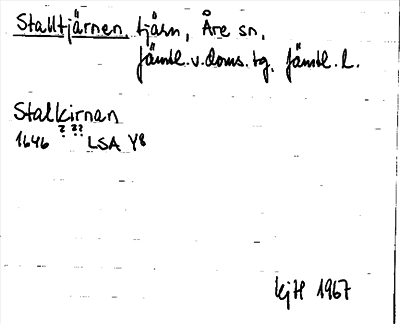 Stalltjärnen, tjärn, Åre sn,
Jämtl. v. doms. tg. Jämtl. l.
Stalkirnan
? ??
1646 LSA Y8
KjH 1967